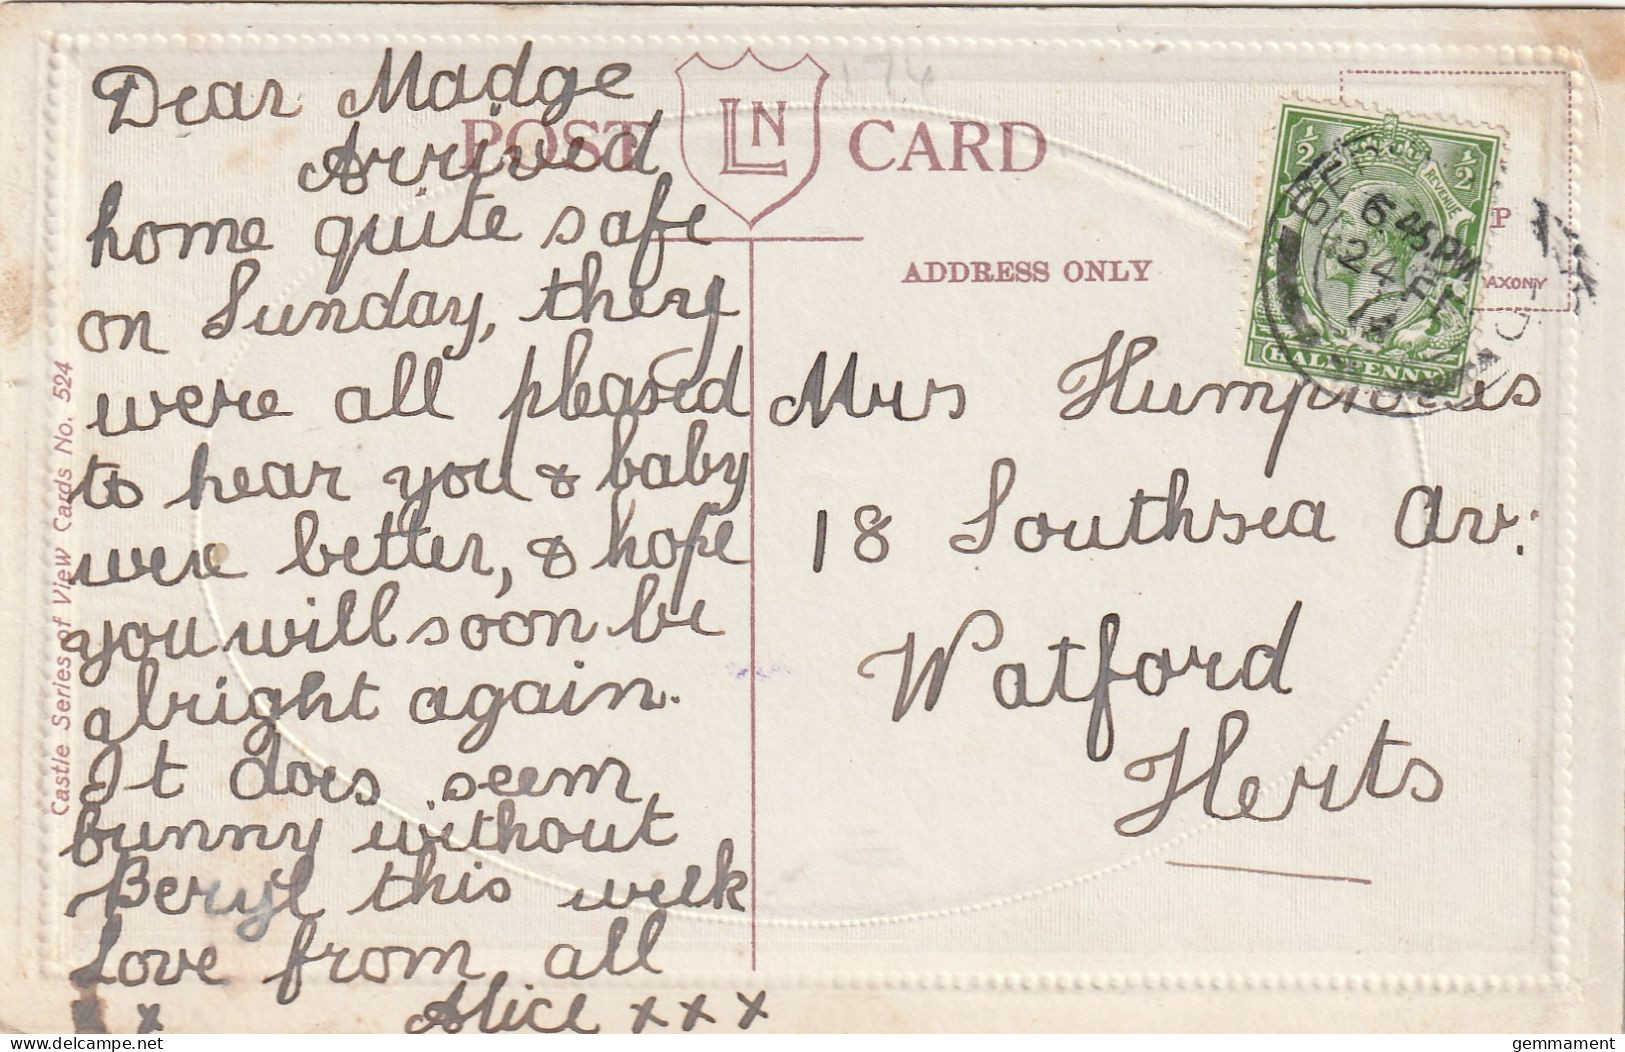 Dear Madge
Arrived
home quite safe
on Sunday, they
were all pleased
to hear you & baby
were better, & hope
you will soon be
alright again.
It does seem
bunny without
Beryl this week
Love from all
x x Alice x x x
POST CARD
LN
174
ADDRESS ONLY
Mrs Humphreys
18 Southsea Av:
Watford
Herts
Castle Series of View Cards No. 524
½ ½
REVENUE
HALFPENNY
6.45 PM
24
14
P
AXONY
delcampe.net
gemmament